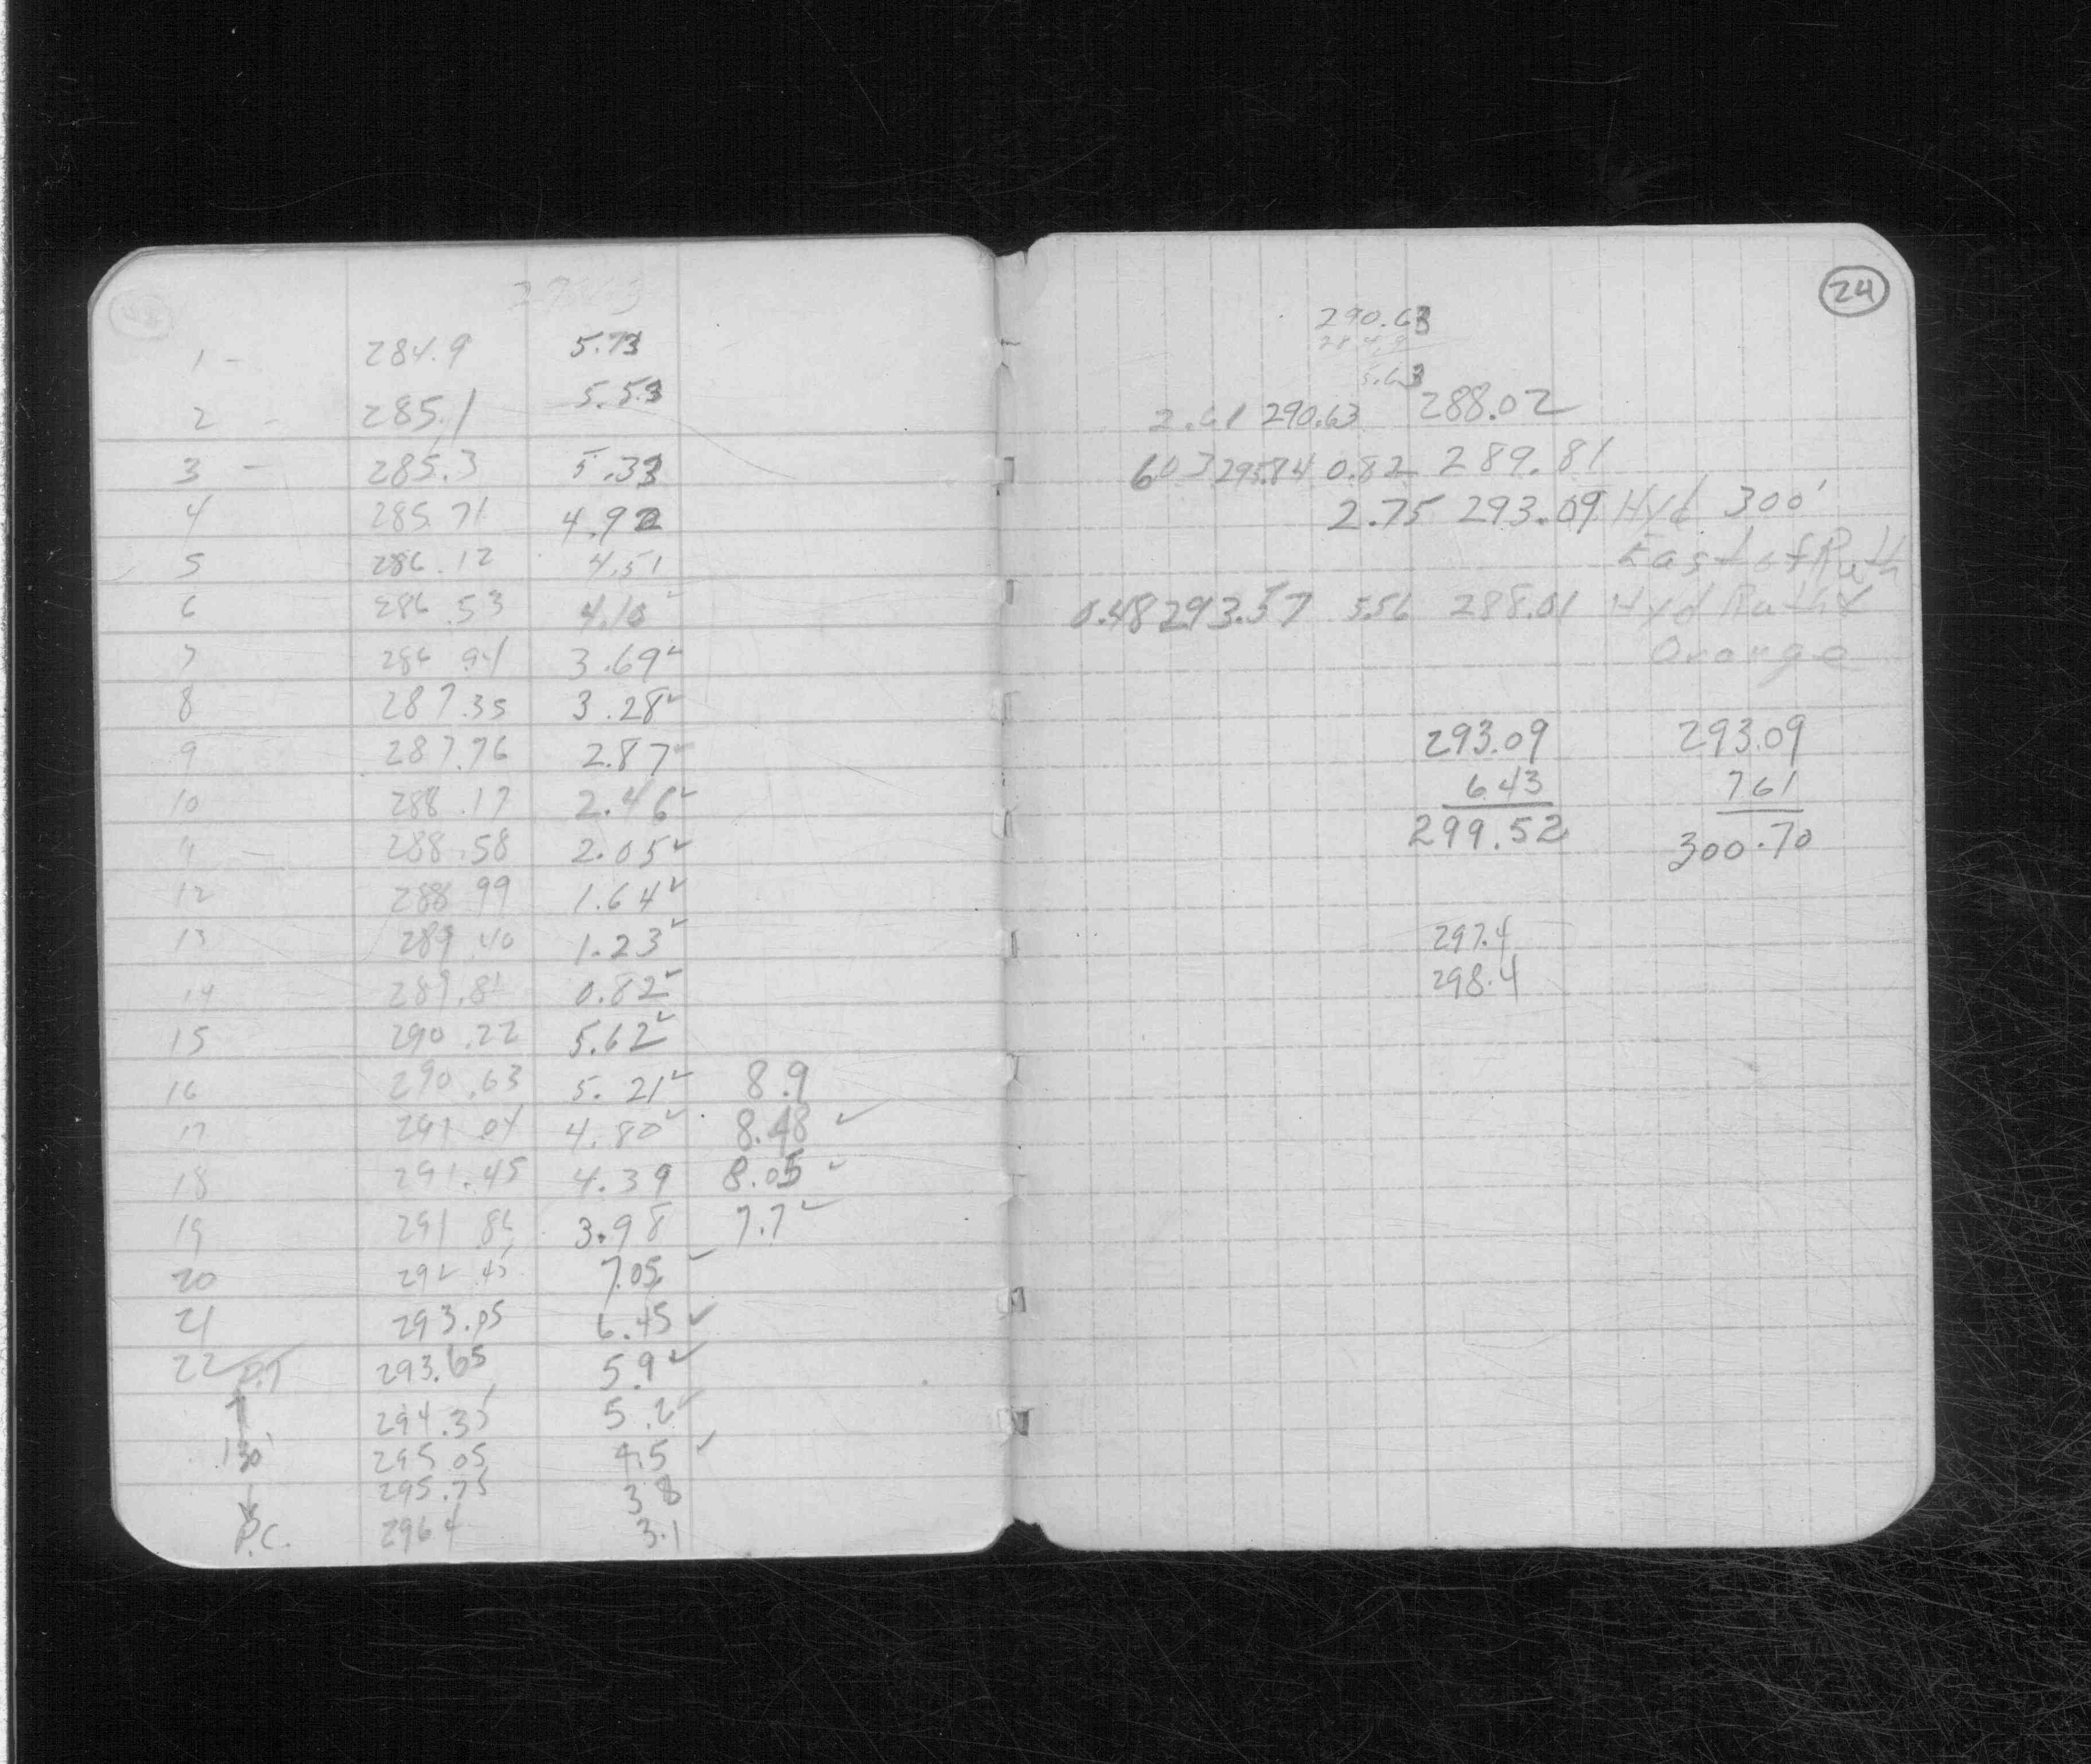 290.63
1 - 284.9 5.73
2 - 285.1 5.53
3 - 285.3 5.33
4 285.71 4.92
5 286.12 4.51
6 286.53 4.10
7 286.94 3.69✓
8 287.35 3.28✓
9 287.76 2.87✓
10 288.17 2.46✓
11 - 288.58 2.05✓
12 288.99 1.64✓
13 289.40 1.23✓
14 289.81 0.82✓
15 290.22 5.62✓
16 290.63 5.21✓ 8.9
17 291.04 4.80✓ 8.48 ✓
18 291.45 4.39 8.05 ✓
19 291.86 3.98 7.7 ✓
20 292.45 7.05 ✓
21 293.05 6.45 ✓
22 P.T 293.65 5.9 ✓
294.35 5.2 ✓
130' 295.05 4.5 ✓
295.75 3.8
P.C. 296.4 3.1
24
290.63
284.9
5.63
2.61 290.63 288.02
6.03 295.84 0.82 289.81
2.75 293.09 Hyd 300'
East of Ruth
0.48 293.57 5.56 288.01 Hyd Ruth &
Orange
293.09 293.09
6.43 7 61
299.52 300.70
297.4
298.4